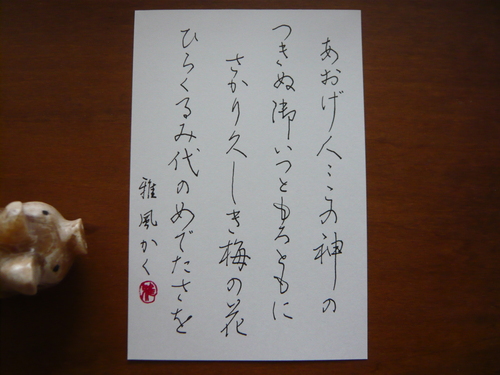 あおげ人ミこの神の
つきぬ御いつともろともに
さかり久しき梅の花
ひらくるみ代のめでたさを
雅風かく